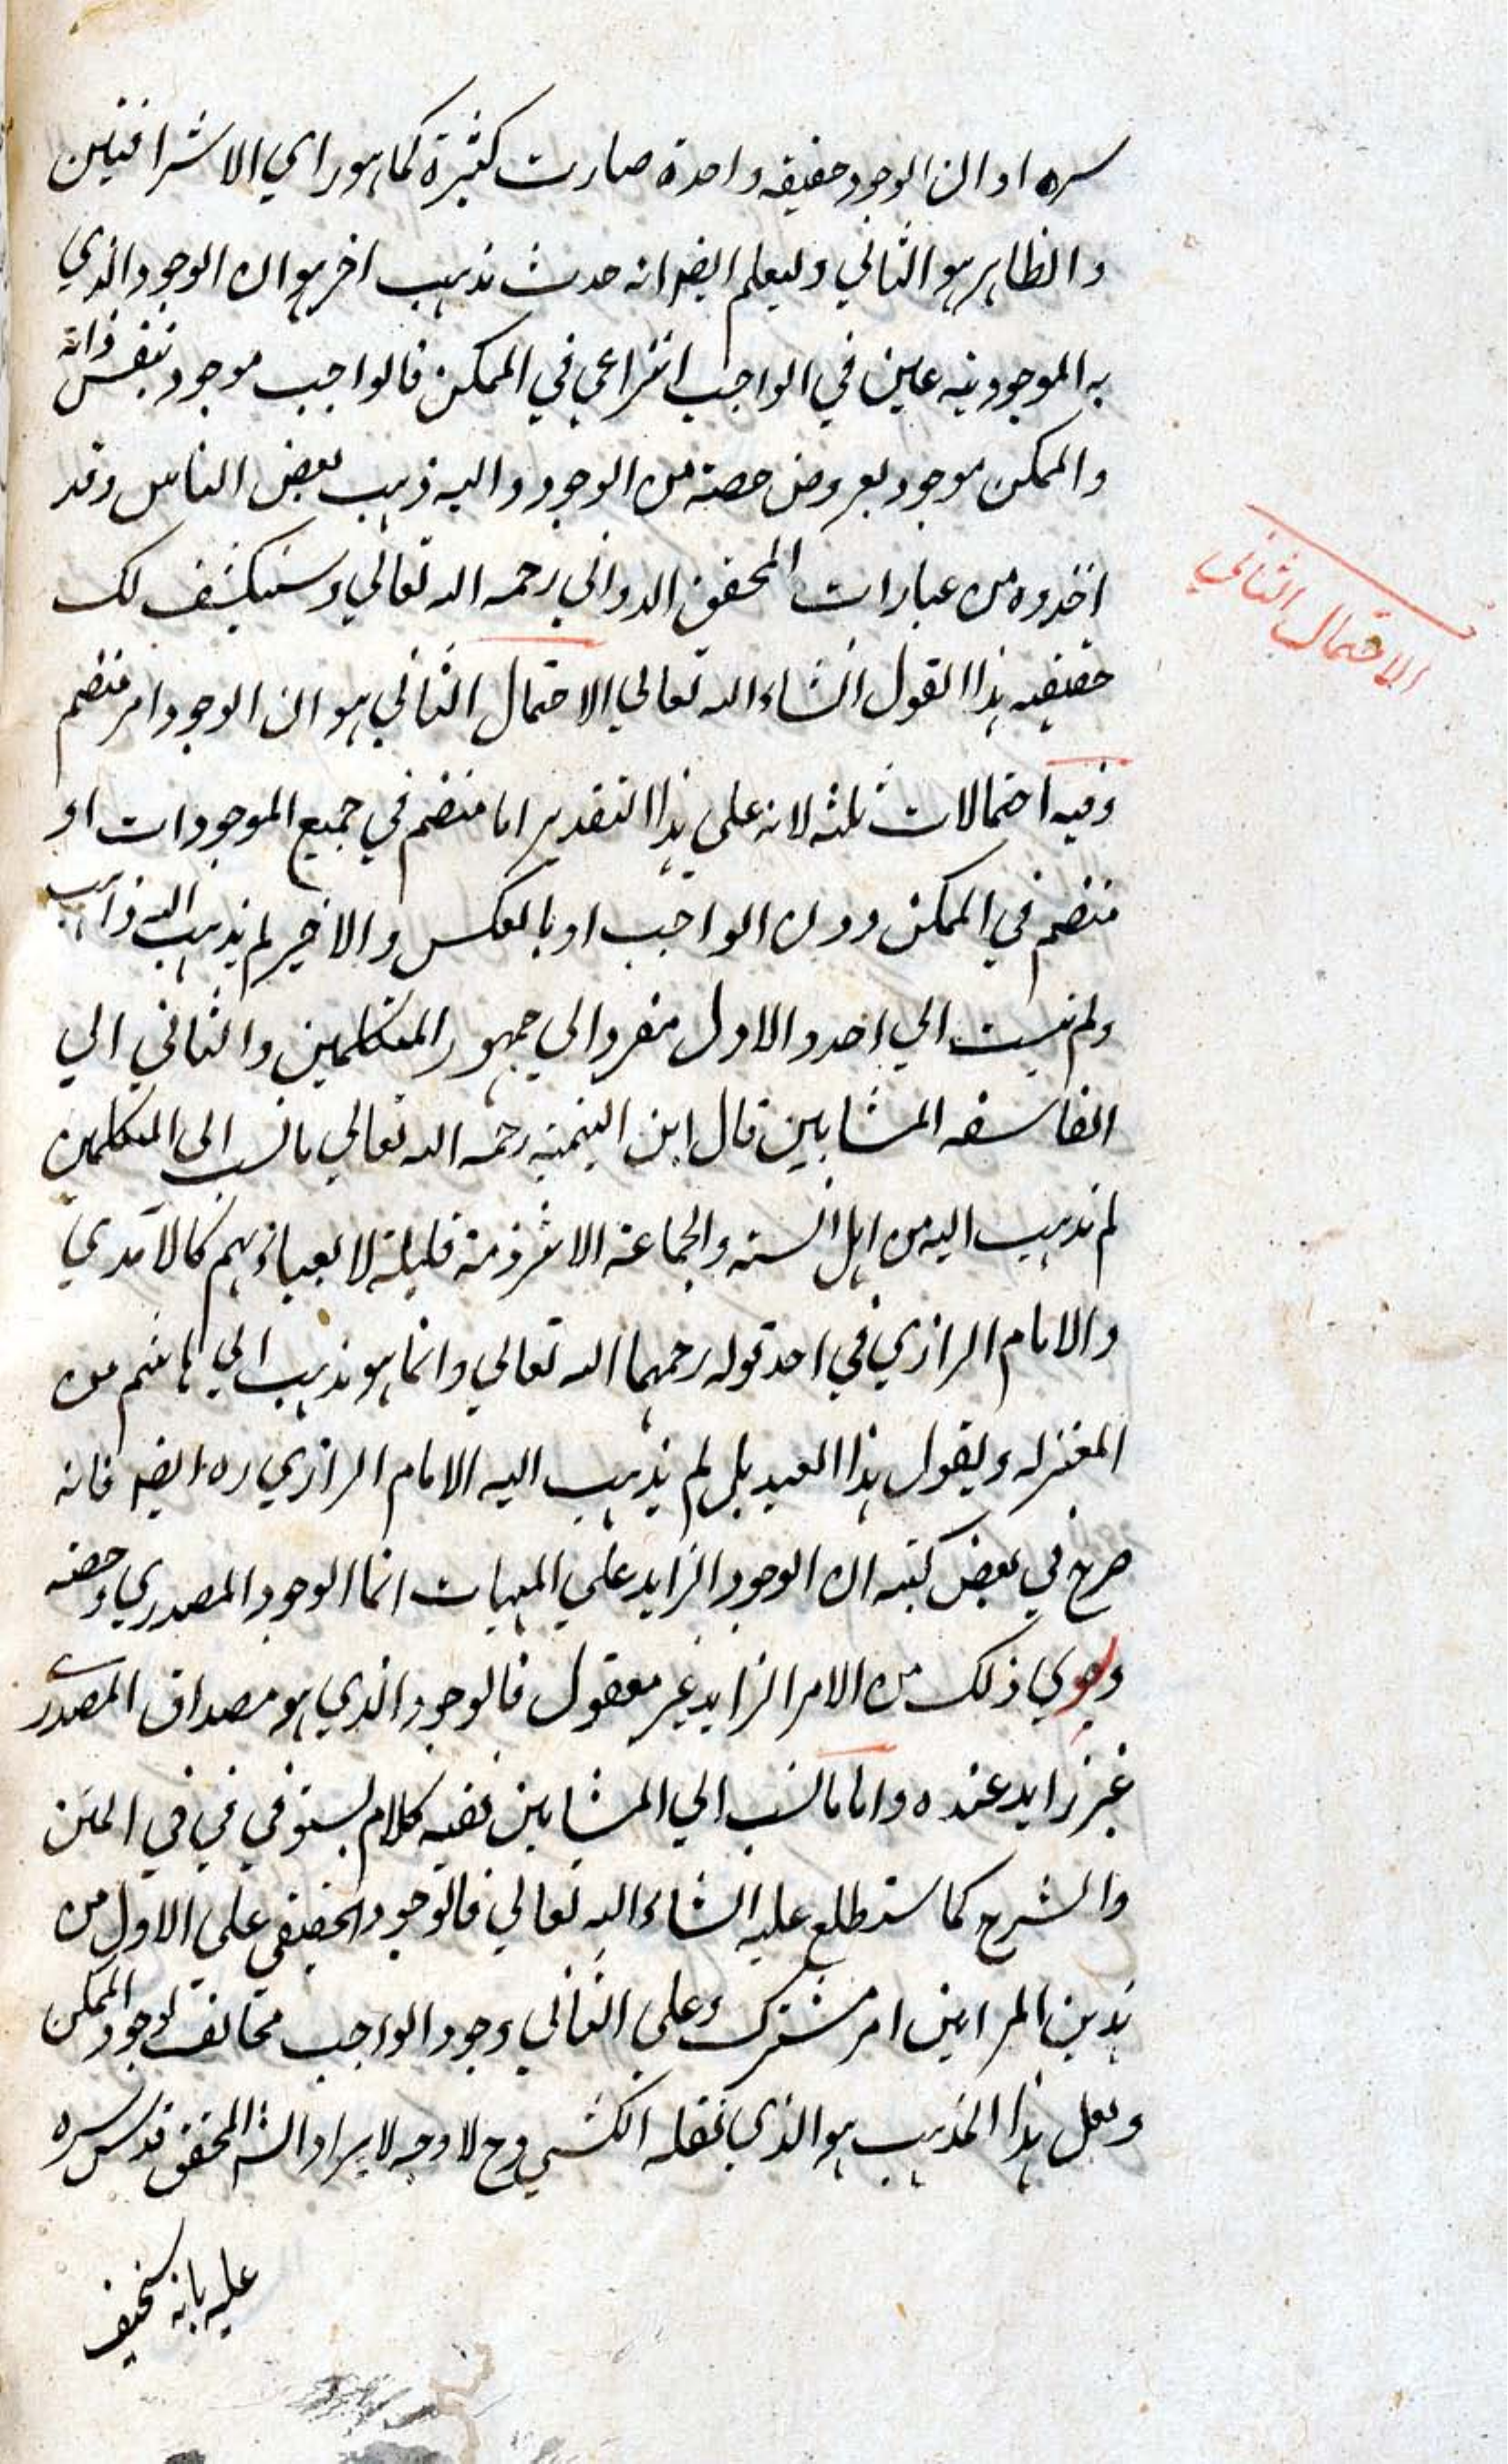 سره او ان الوجود حقيقه واحدة صارت كثيرة كما هو راي الاشراقيين
والظاهر هو الثاني وليعلم ايضا انه حدث مذهب اخر هو ان الوجود الذي
به الموجودية عين في الواجب انتزاعي في الممكن فالواجب موجود بنفس ذاته
والممكن موجود بعروض حصة من الوجود واليه ذهب بعض الناس وقد
اخذوه من عبارات المحقق الدواني رحمه الله تعالي وسينكشف لك
الاحتمال الثاني
حقيقيه هذا القول انشاء الله تعالي الاحتمال الثاني هو ان الوجود امر منضم
وفيه احتمالات ثلثه لانه علي هذا التقدير اما منضم في جميع الموجودات او
منضم في الممكن دون الواجب او بالعكس والاخير لم يذهب اليه ذاهب
ولم ينسب الي احد والاول منفر والي جمهور المتكلمين والثاني الي
الفلاسفه المشايين قال ابن التيمية رحمه الله تعالي ما نسب الى المتكلمين
لم يذهب اليه من اهل السنه والجماعة الا شرذمة قليلة لا يعباء بهم كالآمدي
والامام الرازي في احد قوله رحمهما الله تعالي وانما هو مذهب ابي هاشم من
المعتزله ويقول هذا العبد بل لم يذهب اليه الامام الرازي ره ايضا فانه
صرح في بعض كتبه ان الوجود الزايد علي المهيات انما الوجود المصدري وحصته
وسوي ذلك من الامر الزايد غير معقول فالوجود الذي هو مصداق المصدري
غير زايد عنده واما ما نسب الي المشايين ففيه كلام يستوفي في في المتن
والشرح كما ستطلع عليه انشاء الله تعالي فالوجود الحقيقي علي الاول من
هذين المرامين امر مشترك وعلي الثاني وجود الواجب مخالف لوجود الممكن
ولعل هذا المذهب هو الذي نقله الكشي وح لا وجه لايراد الش المحقق قدس سره
عليه بانه سخيف